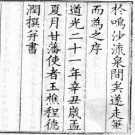 於鳴沙流泉間矣遂走筆
而為之序
道光二十一年辛丑歲孟
夏月甘藩使者王樵程德
潤撰并書